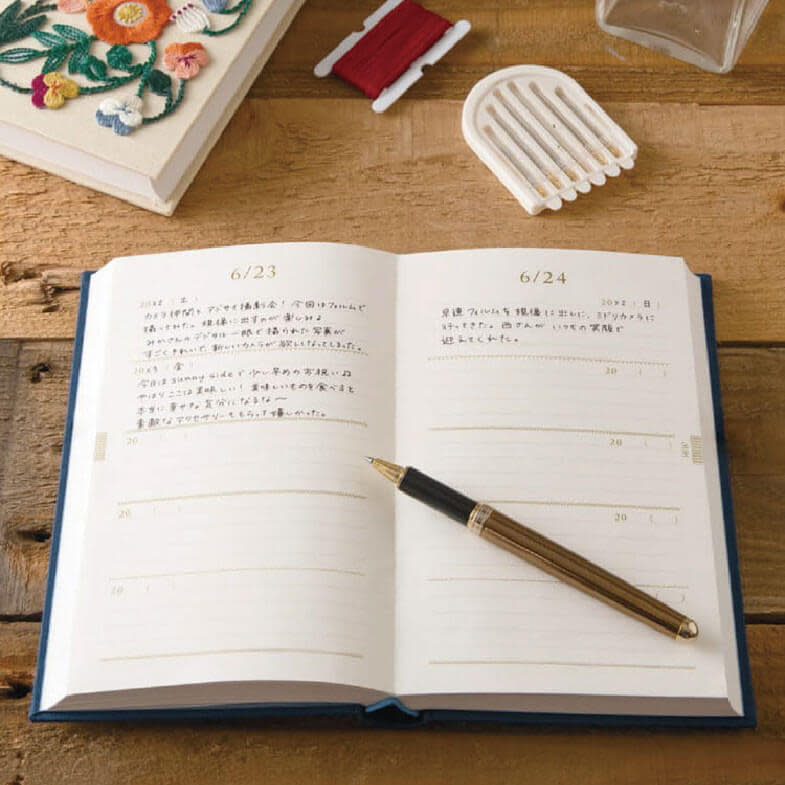 6/23
20X2 (土)
カメラ仲間とアジサイ撮影会！今回はフィルムで
撮ってみた。現像に出すのが楽しみ♪
みかさんのデジタル一眼で撮られた写真が
すごくきれいで、新しいカメラが欲しくなってしまった。
20X3 (金)
今日は sunny side で少し早めのお祝い♪
やはりここは美味しい！美味しいものを食べると
本当に幸せな気分になるな〜
素敵なアクセサリーももらって嬉しかった。
20 ( )
20 ( )
20 ( )
6/24
20X2 (日)
早速フィルムを現像に出しに、ミドリカメラに
行ってきた。西さんがいつもの笑顔で
迎えてくれた。
20 ( )
20 ( )
20 ( )